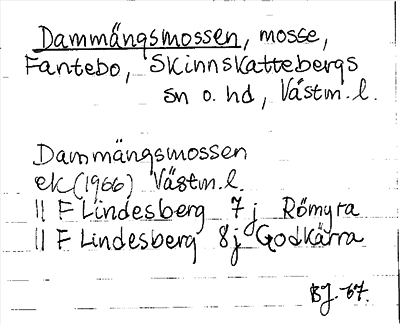 Dammängsmossen, mosse,
Fantebo, Skinnskattebergs
sn o. hd, Västm. l.
Dammängsmossen
ek (1966) Västm. l.
11 F Lindesberg 7 j Römyra
11 F Lindesberg 8 j Godkärra
BJ. 67.